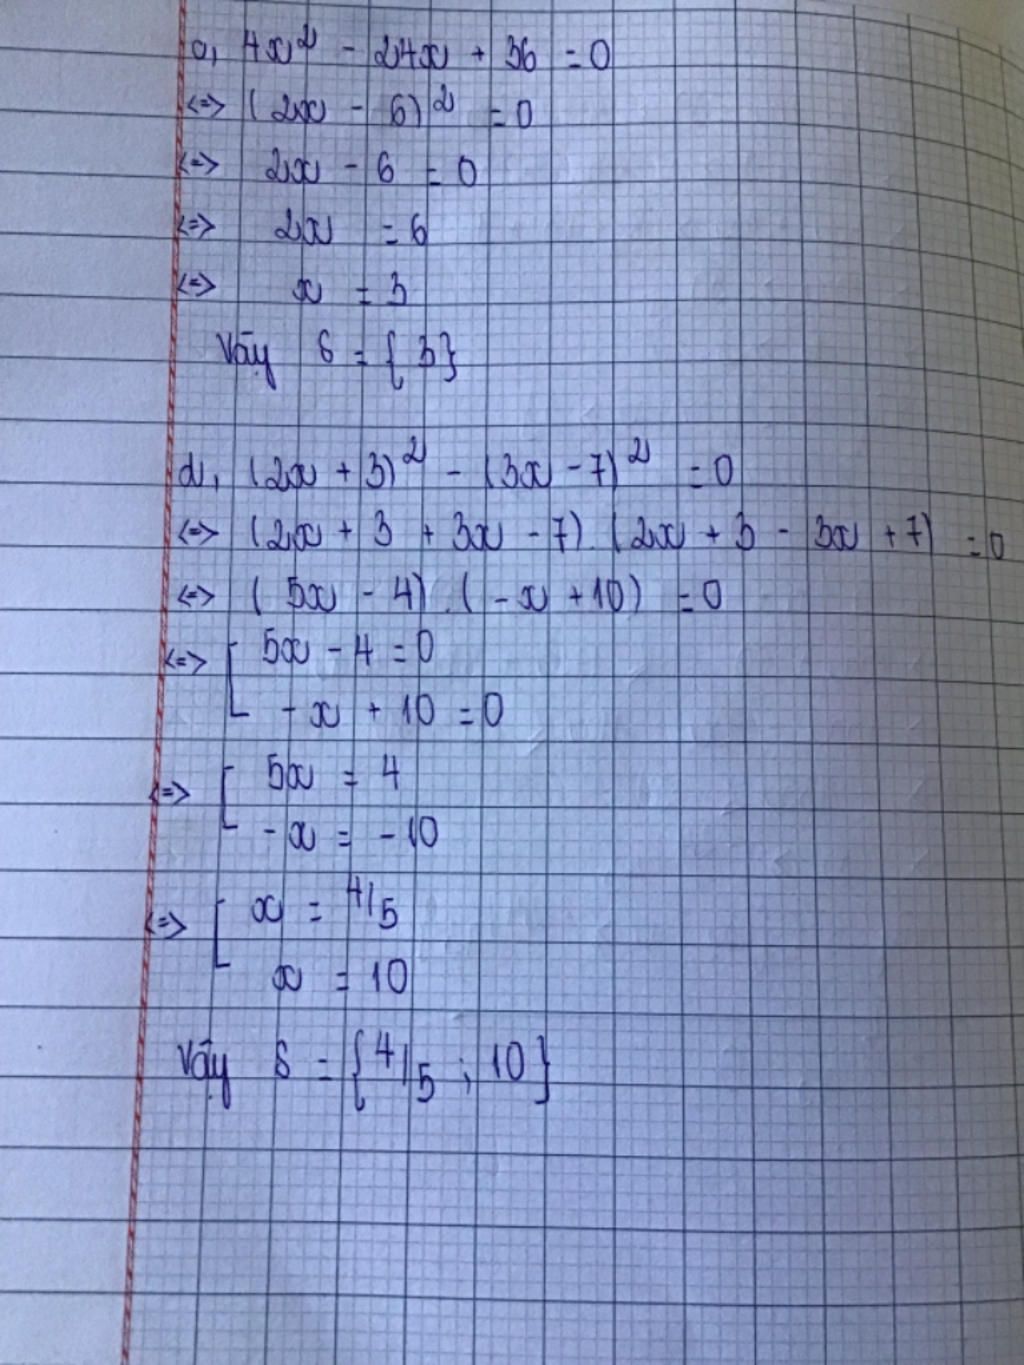 a, 4x² - 24x + 36 = 0
<=> (2x - 6)² = 0
<=> 2x - 6 = 0
<=> 2x = 6
<=> x = 3
Vậy S = { 3 }
d, (2x + 3)² - (3x - 7)² = 0
<=> (2x + 3 + 3x - 7) . (2x + 3 - 3x + 7) = 0
<=> ( 5x - 4) . ( - x + 10) = 0
<=> [ 5x - 4 = 0
- x + 10 = 0
<=> [ 5x = 4
- x = - 10
<=> [ x = 4/5
x = 10
Vậy S = { 4/5 ; 10 }